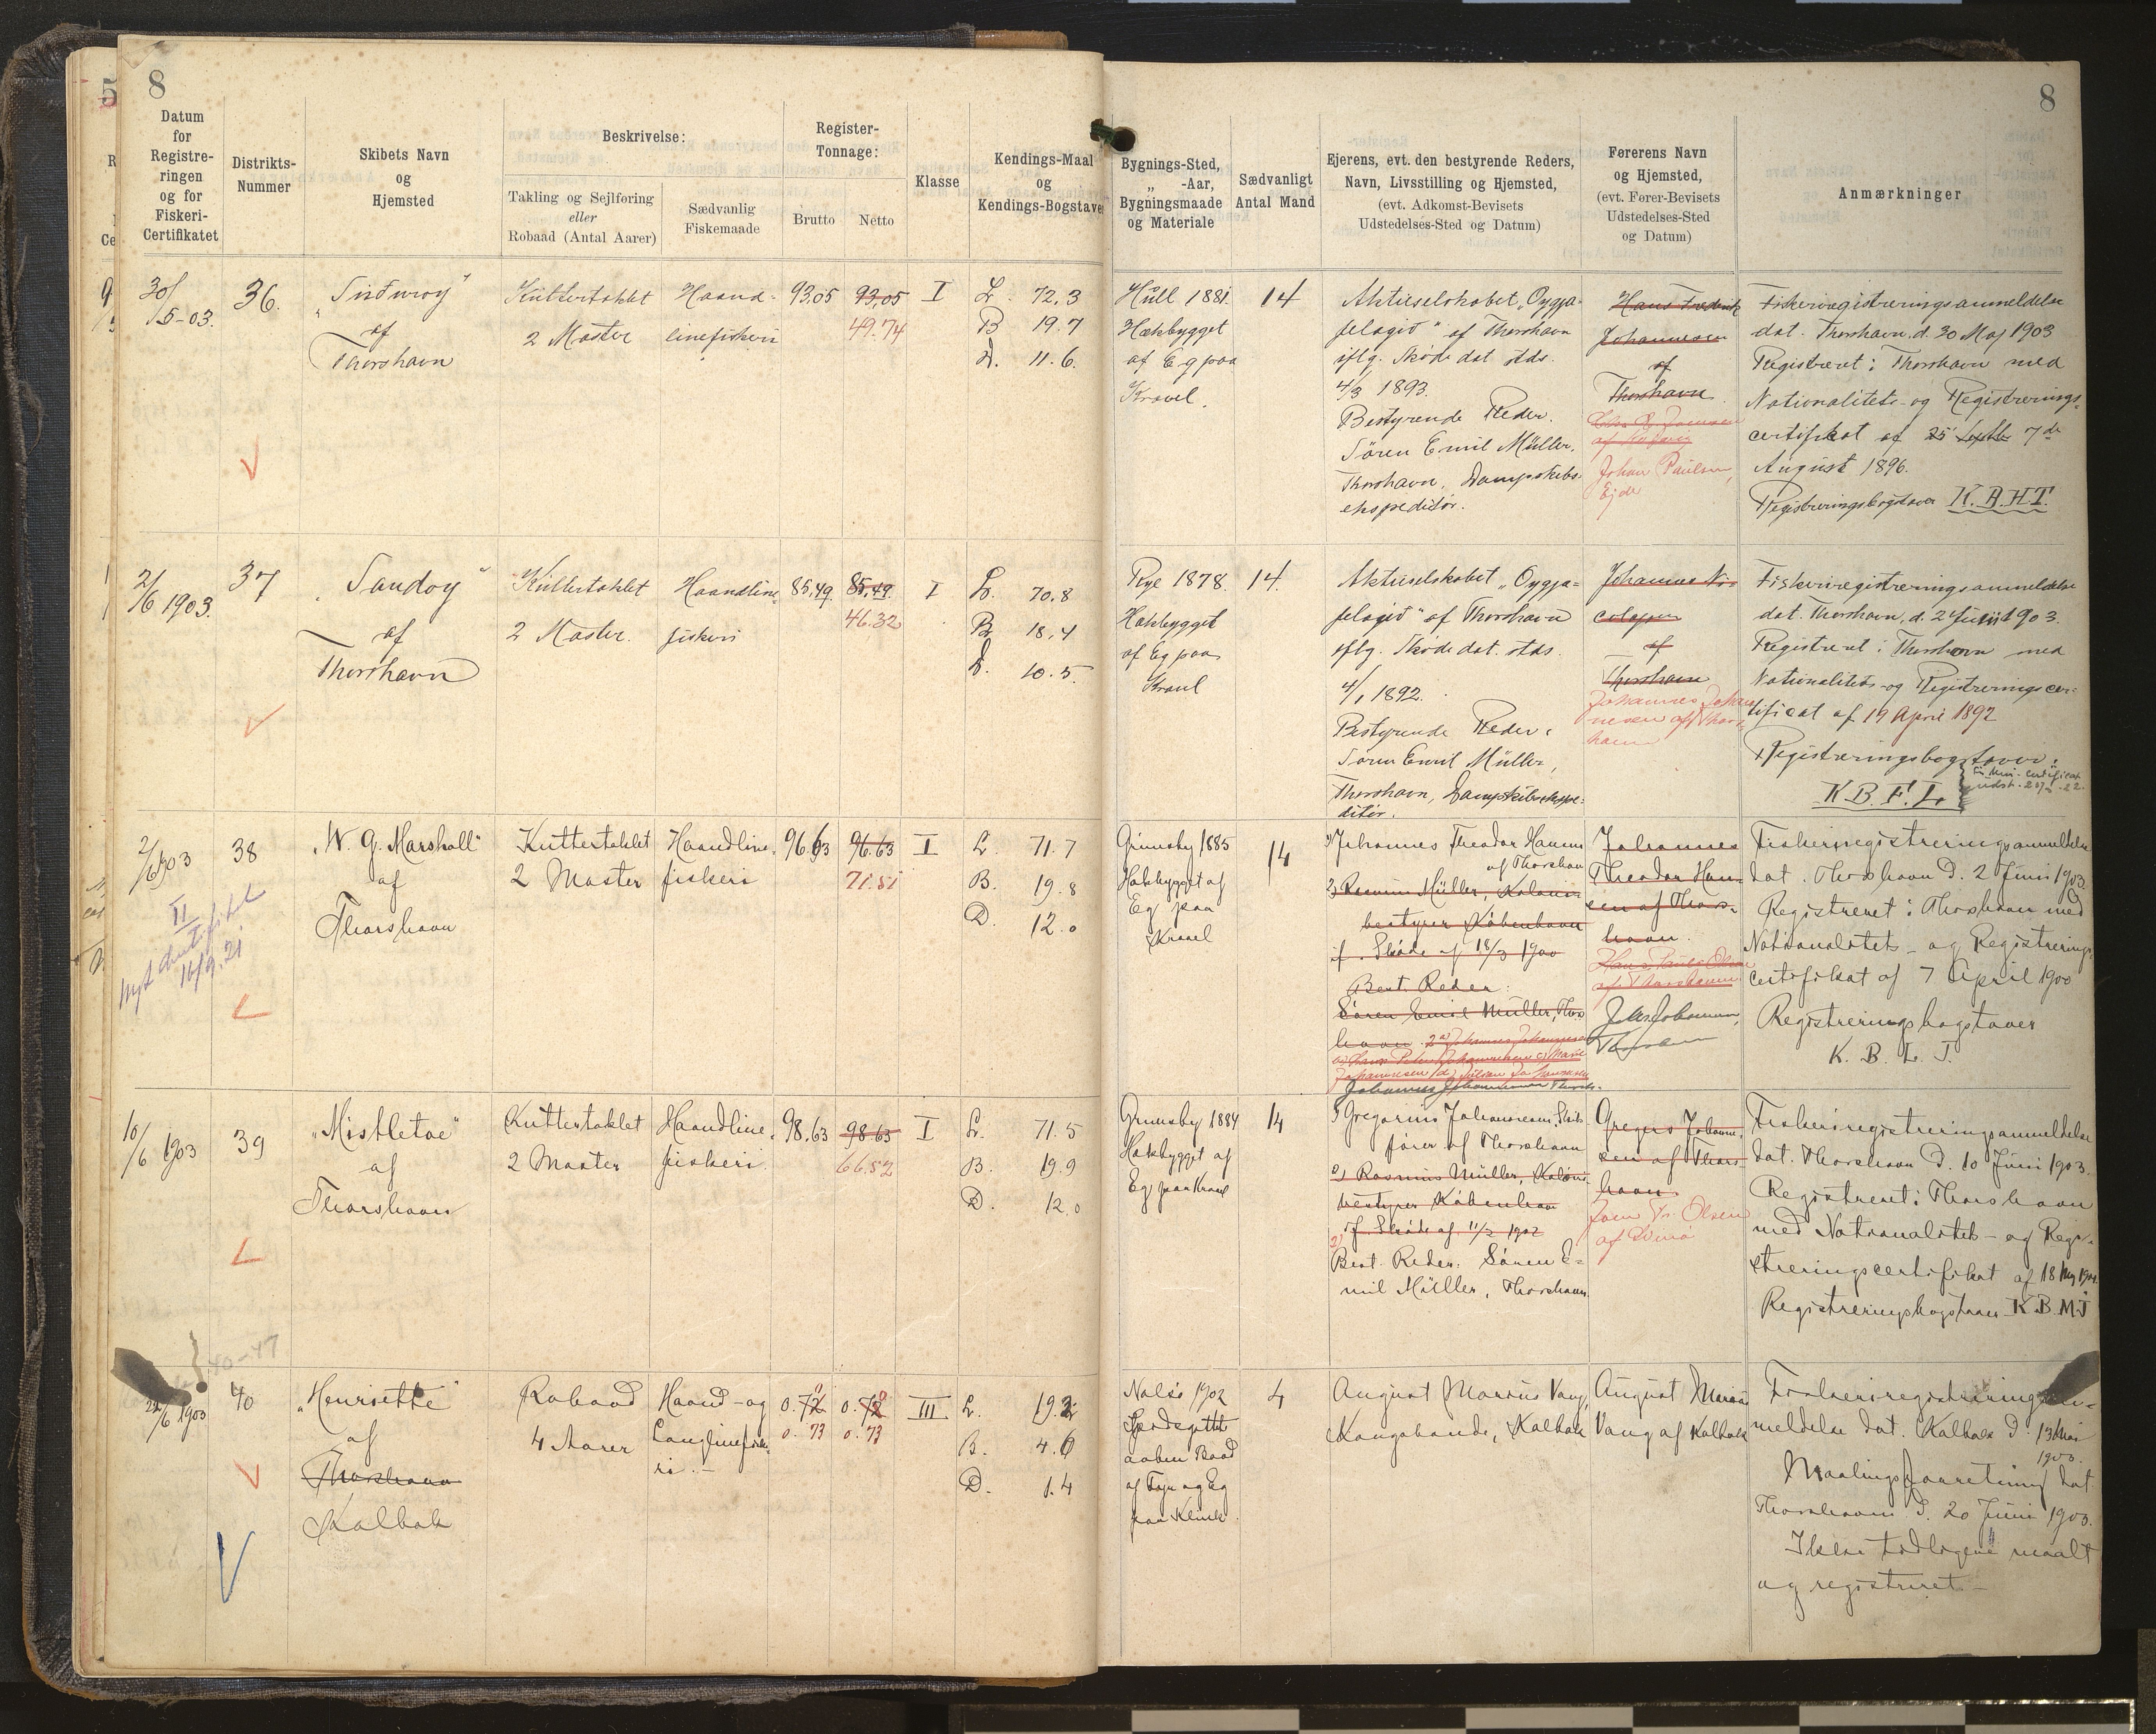 8
8
Datum
for
Registre-
ringen
og for
Fiskeri-
Certifikatet
Distrikts-
Nummer
Skibets Navn
og
Hjemsted
Beskrivelse:
Takling og Sejlføring
eller
Robaad (Antal Aarer)
Sædvanlig
Fiskemaade
Register-
Tonnage:
Brutto
Netto
Klasse
Kendings-Maal
og
Kendings-Bogstaver
Bygnings-Sted,
„ -Aar,
Bygningsmaade
og Materiale
Sædvanligt
Antal Mand
Ejerens, evt. den bestyrende Reders,
Navn, Livsstilling og Hjemsted,
(evt. Adkomst-Bevisets
Udstedelses-Sted og Datum)
Førerens Navn
og Hjemsted,
(evt. Fører-Bevisets
Udstedelses-Sted
og Datum)
Anmærkninger
30/
5-03.
36.
„Suduroy"
af
Thorshavn
Kuttertaklet
2 Master
Haand-
linefiskeri
93,05
93,05
49.74
I
L. 72.3
B 19.7
D. 11.6.
Hull 1881.
Hækbygget
af Eg paa
Kravel.
14
Aktieselskabet „Oygja-
felagið" af Thorshavn
iflg. Skøde dat. stds.
4/3 1893.
Bestyrende Reder.
Søren Emil Müller,
Thorshavn, Dampskibs-
ekspeditør.
Hans Frederik
Johannesen
af
Thorshavn
Johan Paulsen,
Ejde
Fiskeriregistreringsanmeldelse
dat. Thorshavn, d. 30 Maj 1903
Registreret i Thorshavn med
Nationalitets- og Registrerings-
certifikat af 25 Septb 7de
August 1896.
Registreringsbogstaver K.B.H.T.
2/
6 1903.
37
„Sandoy"
af
Thorshavn
Kuttertaklet
2 Master.
Haandline
fiskeri
85,49.
85,49.
46.32
I
L. 70.8
B. 18.4
D. 10.5.
Rye 1878.
Hækbygget
af Eg paa
Kravl
14.
Aktieselskabet „Oygja-
felagið" af Thorshavn
iflg. Skøde dat. stds.
4/1 1892.
Bestyrende Reder:
Søren Emil Müller,
Thorshavn, Dampskibsekspe-
ditør.
Johannes Ni-
colajsen
af
Thorshavn
Johannes Johan
nesen af Thors-
havn
Fiskeriregistreringsanmeldelse
dat. Thorshavn, d. 2 Juni 1903.
Registreret i Thorshavn med
Nationalitets- og Registreringscer-
tificat af 19 April 1892
Registreringsbogstaver:
K.B.F.L.
2/
6 1903
38
„W. G. Marshall"
af
Thorshavn
II
Nyt Certifikat
16/9.21
Kuttertaklet
2 Master
Haandline
fiskeri
96.63
96.63
71.51
I
L. 71.7
B. 19.8
D. 12.0
Grimsby 1885
Hækbygget af
Eg paa
Kravel
14
1) Johannes Theodor Hansen
af Thorshavn
2) Rasmus Müller, Koloni-
bestyrer København
if. Skøde af 18/3 1900
Best. Reder:
Søren Emil Müller, Thors
havn. 2a) Johannes Johannesen
Johannes
Theodor Han-
sen af Thors-
havn.
Hans Paule Olsen
af Thorshavn
Fiskeriregistreringsanmeldelse
dat. Thorshavn D. 2 Juni 1903.
Registreret i Thorshavn med
Nationalitets- og Registrerings
certifikat af 7 April 1900
Registreringsbogstaver
K. B. L. J.
10/
6 1903
39
„Mistletoe"
af
Thorshavn
Kuttertaklet
2 Master
Haandline
fiskeri.
98.63
98.63
66.52
I
L. 71.5
B. 19.9
D. 12.0
Grimsby 1884
Hækbygget af
Eg paa Kravl
14
1) Gregorius Johannesen, Skibs-
fører af Thorshavn
2) Rasmus Müller, Koloni-
bestyrer København
if. Skøde af 11/3 1902
Best. Reder: Søren E-
mil Müller, Thorshavn.
Gregers Johanne-
sen af Thors-
havn.
Fiskeriregistreringsanmeldelse
dat. Thorshavn D. 10 Juni 1903.
Registreret i Thorshavn
med Nationalitets- og Regi-
streringscertifikat af 18 Maj 1902
Registreringsbogstaver K.B.M.J
40-47
22/6 1903
40
„Henriette"
af
Thorshavn
Kalbak
Robaad
4 Aarer
Haand- og
Langlinefiske-
ri.-
0.72
0.72
0.73
0.73
III
L. 19.2
B. 4.6
D. 1.4
Nolsø 1902
Spidsgattet
aaben Baad
af Fyr og Eg
paa Klink
4
August Marius Vang,
Kongsbonde, Kalbak
August Marius
Vang af Kalbak
Fiskeriregistreringsan-
meldelse dat. Kalbak D. 13 Mai
1903.
Maalingsforretning dat
Thorshavn D. 20 Juni 1903.
Ikke tidligere maalt
og registreret-